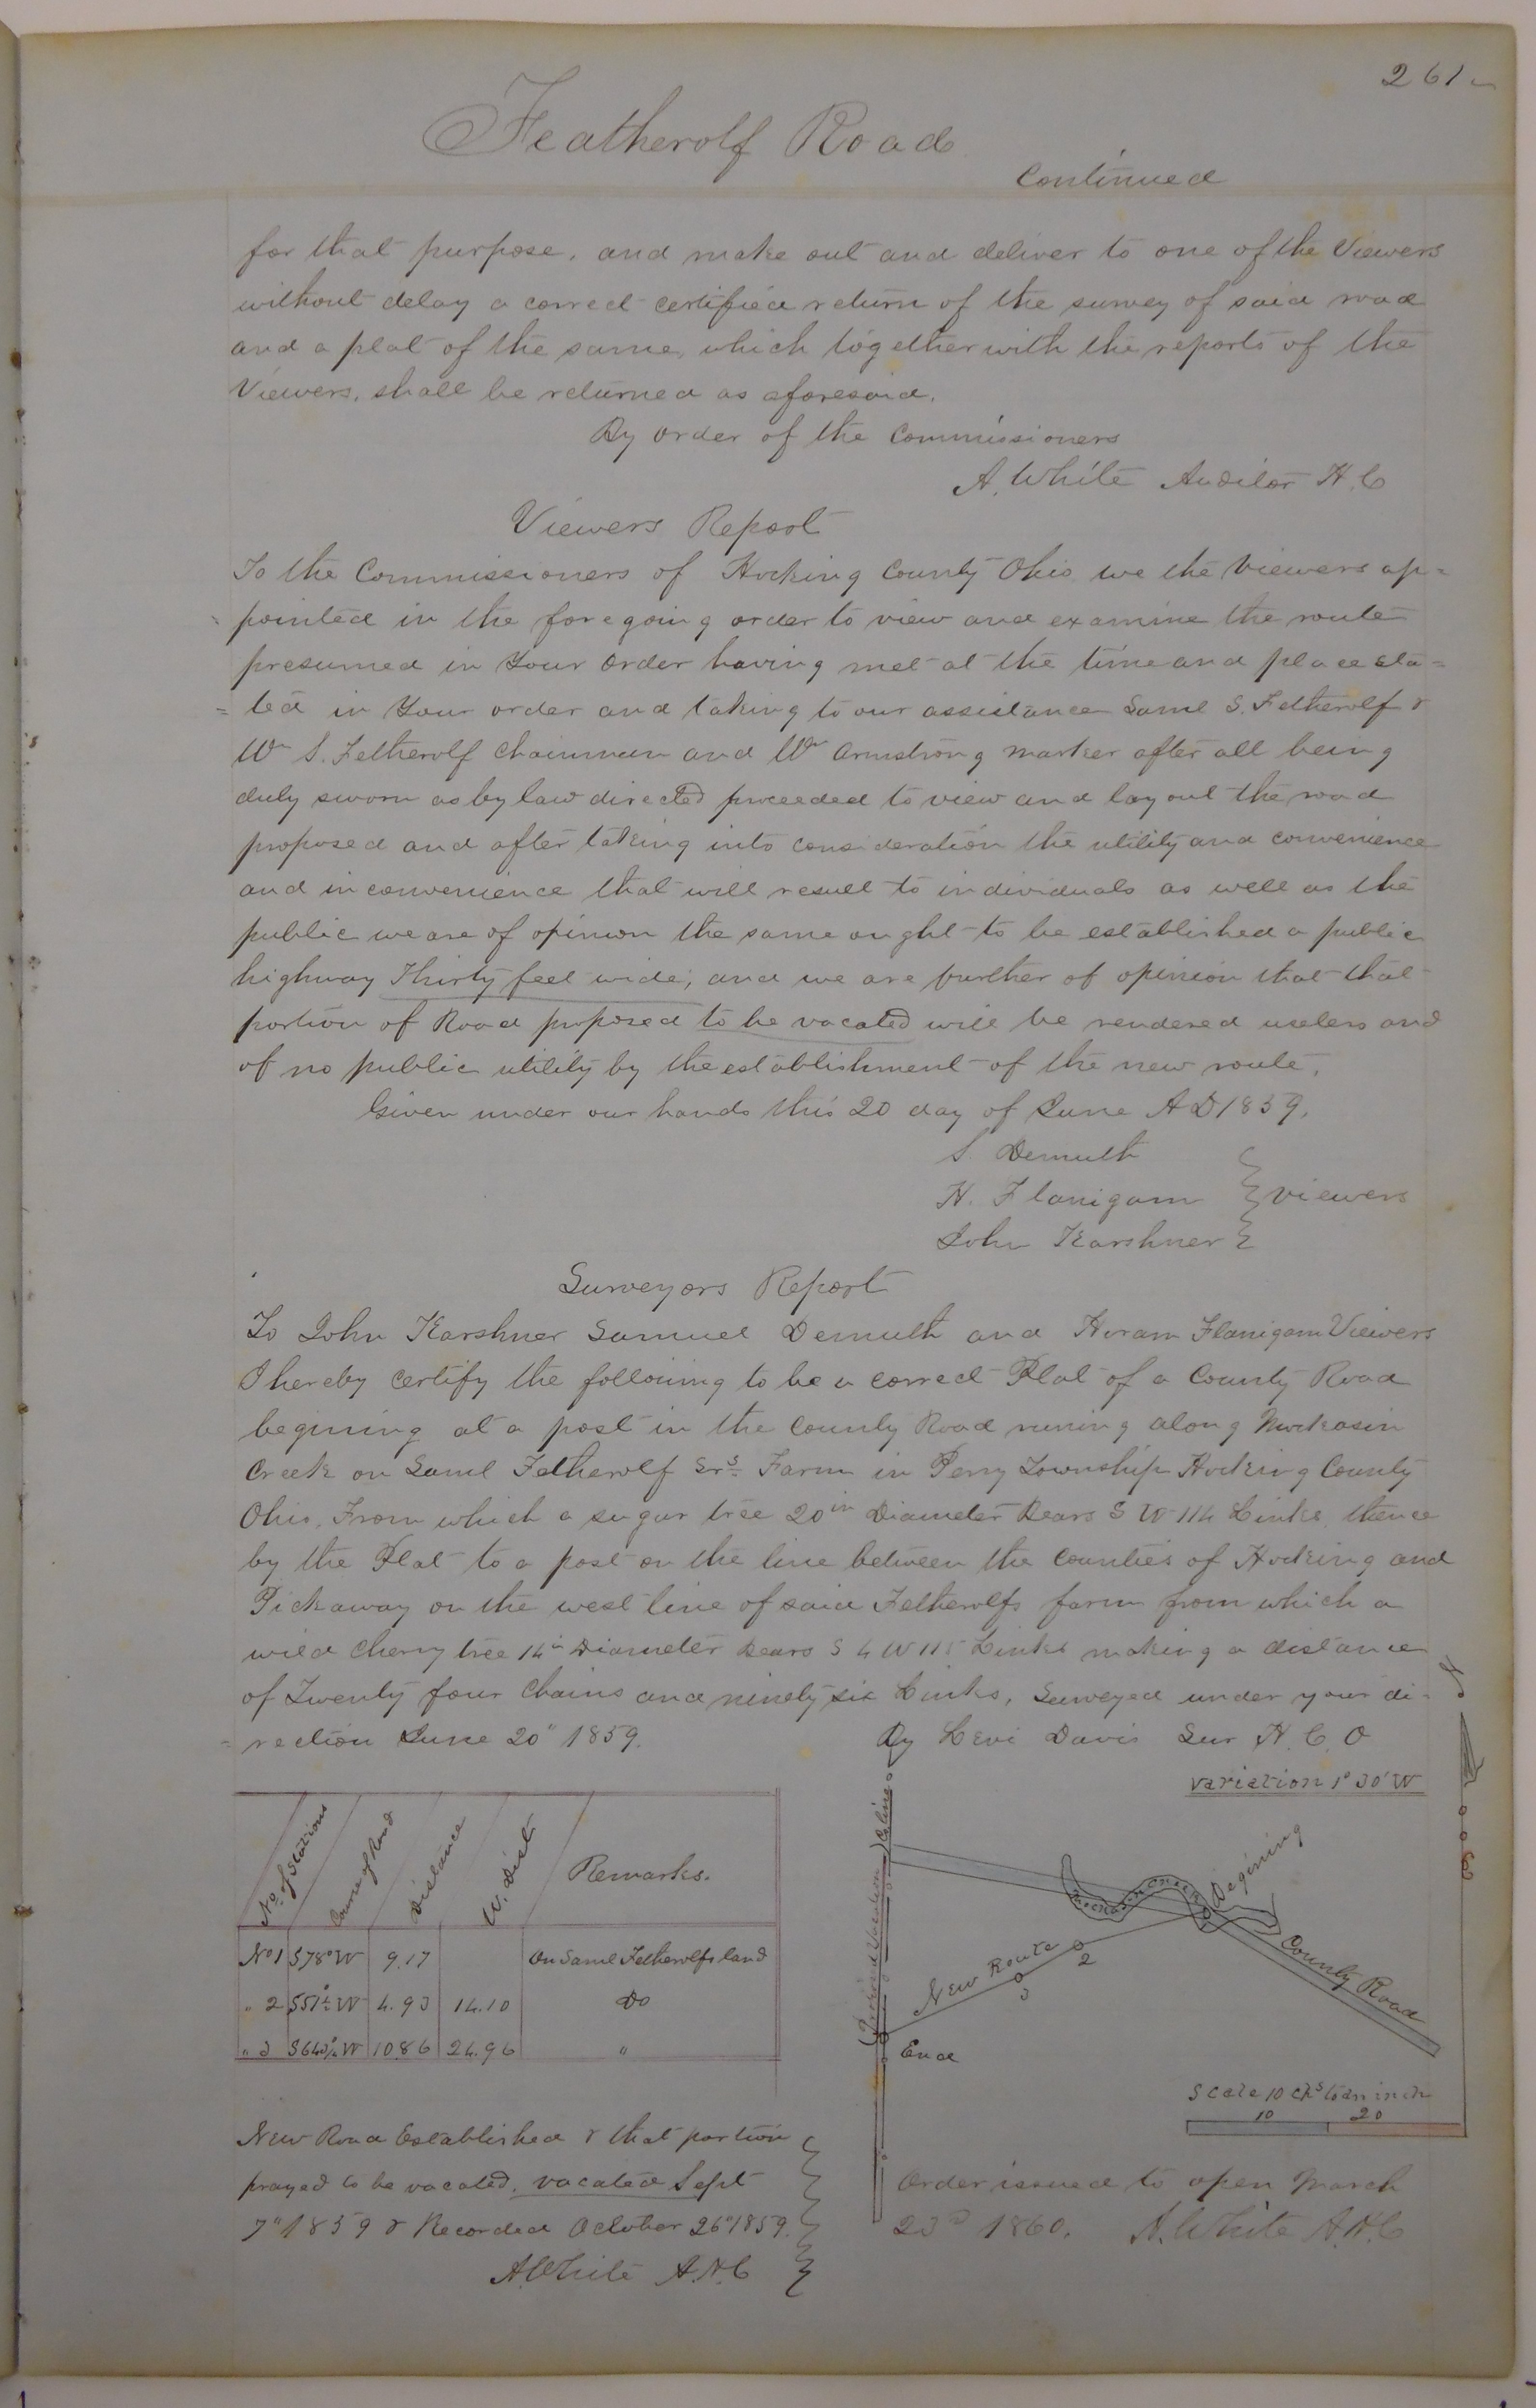 261
Featherolf Road
Continued
for that purpose, and make out and deliver to one of the Viewers
without delay a correct certified return of the survey of said road
and a plat of the same, which together with the reports of the
Viewers, shall be returned as aforesaid.
By order of the Commissioners
A. White Auditor H. C
Viewers Report
To the Commissioners of Hocking County Ohio we the Viewers ap=
=pointed in the foregoing order to view and examine the route
presumed in Your order having met at the time and place sta=
=ted in Your order and taking to our assistance Saml S. Fetherolf &
Wm S. Fetherolf Chainman and Wm Armstrong marker after all being
duly sworn as by law directed proceeded to view and lay out the road
proposed and after taking into consideration the utility and convenience
and inconvenience that will result to individuals as well as the
public we are of opinion the same ought to be established a public
highway Thirty feet wide, and we are further of opinion that that
portion of Road proposed to be vacated will be rendered useless and
of no public utility by the establishment of the new route.
Given under our hands this 20 day of June A D 1859.
S. Demuth
H. Flanigam } viewers
John Karshner
Surveyors Report
To John Karshner Samuel Demuth and Hiram Flanigam Viewers
I hereby certify the following to be a correct Plat of a County Road
begining at a post in the County Road runing along Mockasin
Creek on Saml Fetherolf Srs Farm in Perry Township Hocking County
Ohio. From which a sugar tree 20 in Diameter Bears S W 114 Links thence
by the Plat to a post on the line between the Counties of Hocking and
Pickaway on the west line of said Fetherolfs farm from which a
wild Cherry tree 14 in Diameter Bears S 4 W 115 Links making a distance
of Twenty four Chains and ninety six Links, Surveyed under your di=
=rection June 20" 1859.
By Levi Davis Sur H. C. O
variation 1° 30' W
No. of Stations Course of Road Distance W. Dist Remarks.
No 1 S78°W 9.17 On Saml Fetherolfs land
" 2 S51½°W 4.93 14.10 Do
" 3 S64¾°W 10.86 24.96 "
Co line
Begining
County Road
New Route
2
3
End
Scale 10 chs to an inch
10 20
New Road Established & that portion
prayed to be vacated, vacated Sept
7" 1859 & Recorded October 26" 1859.
A. White A.H.C
Order issued to open March
23d 1860. A. White A.H.C